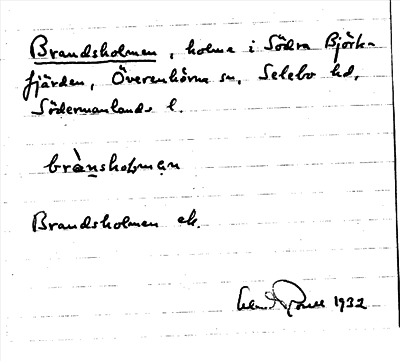 Brandsholmen, holme i Södra Björk-
fjärden, Överenhörna sn, Selebo hd,
Södermanlands l.
brànsholmən
Brandsholmen ek.
1932